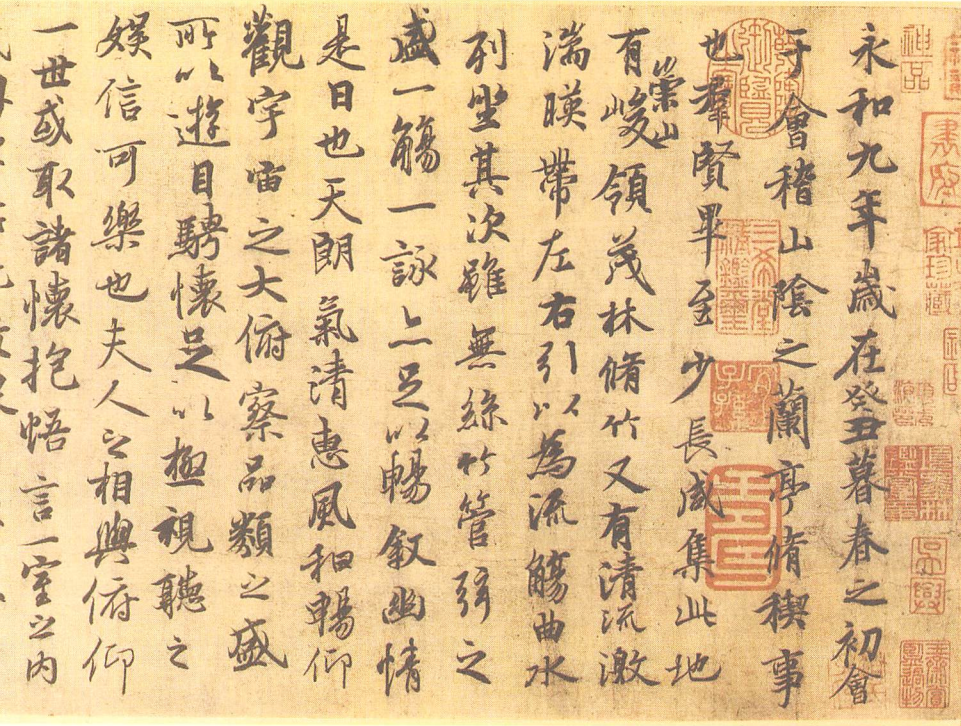 永和九年歲在癸丑暮春之初會
于會稽山陰之蘭亭脩稧事
也羣賢畢至少長咸集此地
有崇山峻領茂林脩竹又有清流激
湍暎帶左右引以為流觴曲水
列坐其次雖無絲竹管弦之
盛一觴一詠亦足以暢叙幽情
是日也天朗氣清惠風和暢仰
觀宇宙之大俯察品類之盛
所以遊目騁懷足以極視聽之
娛信可樂也夫人之相與俯仰
一世或取諸懷抱悟言一室之内
神品
書府
家珍藏
三希堂
子孫
吳炳